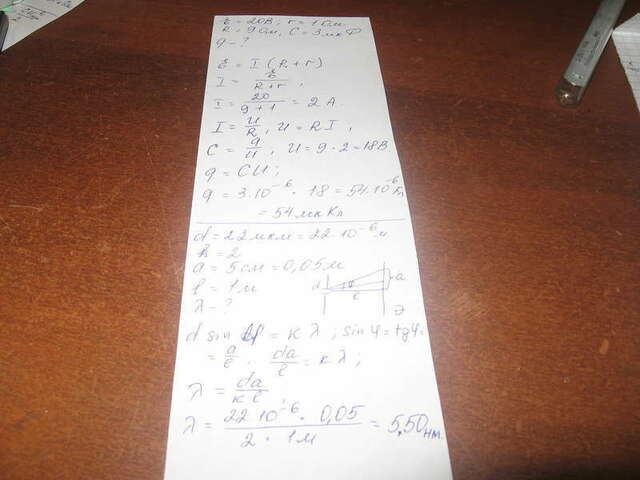 ε = 20В; r = 1 Ом
R = 9 Ом, C = 3 мкФ
q - ?
ε = I (R + r)
I = ε / (R + r) ;
I = 20 / (9 + 1) = 2 А.
I = U / R, U = RI ;
C = q / U, U = 9 · 2 = 18В
q = CU ;
q = 3·10⁻⁶ · 18 = 54·10⁻⁶ Кл
= 54 мкКл
d = 22 мкм = 22·10⁻⁶ м
k = 2
a = 5 см = 0,05 м
l = 1 м
λ - ?
d φ a
l
Э
d sin φ = к λ ; sin φ = tg φ =
= a / l . da / l = к λ ;
λ = da / к l
λ = 22·10⁻⁶ · 0,05 / 2 · 1 м = 5,50 нм.